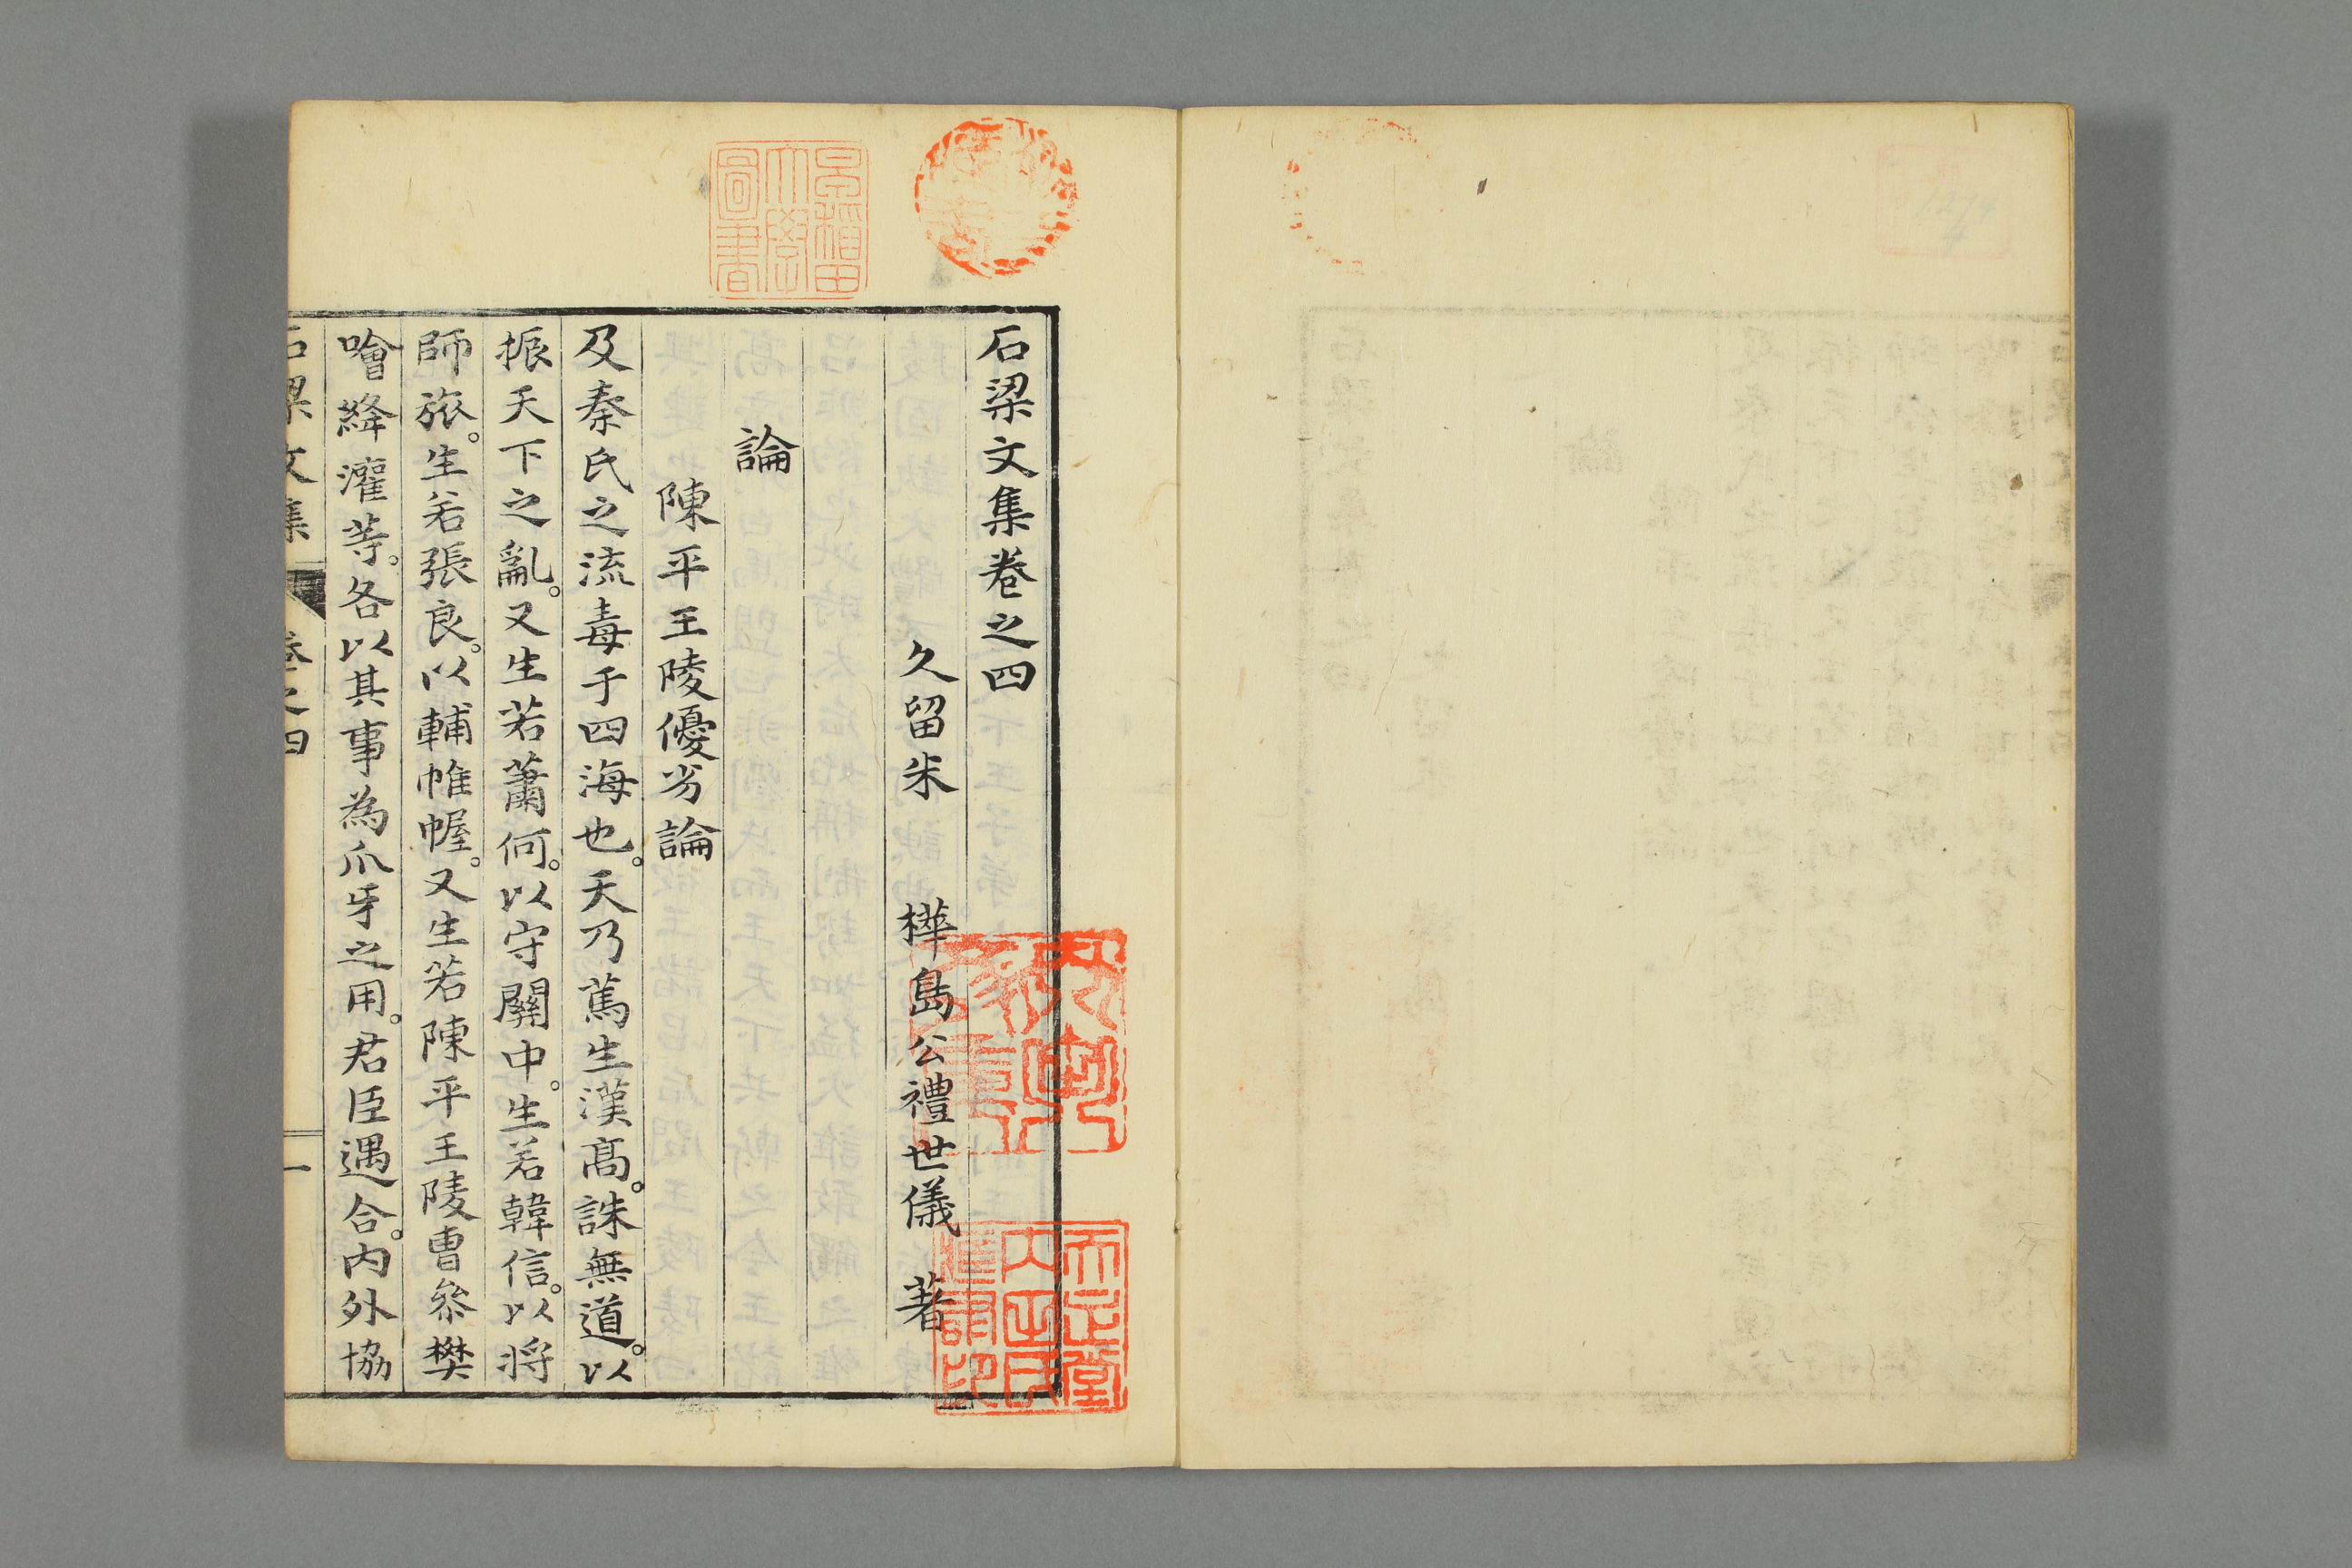 石梁文集卷之四
久留米 樺島公禮世儀 著
論
陳平王陵優劣論
及秦氏之流毒于四海也。天乃篤生漢高。誅無道。以
振天下之亂。又生若蕭何。以守關中。生若韓信。以将
師旅。生若張良。以輔帷幄。又生若陳平王陵曹參樊
噲絳灌等。各以其事為爪牙之用。君臣遇合。内外協
石梁文集 卷之四 一
早稲田大學圖書